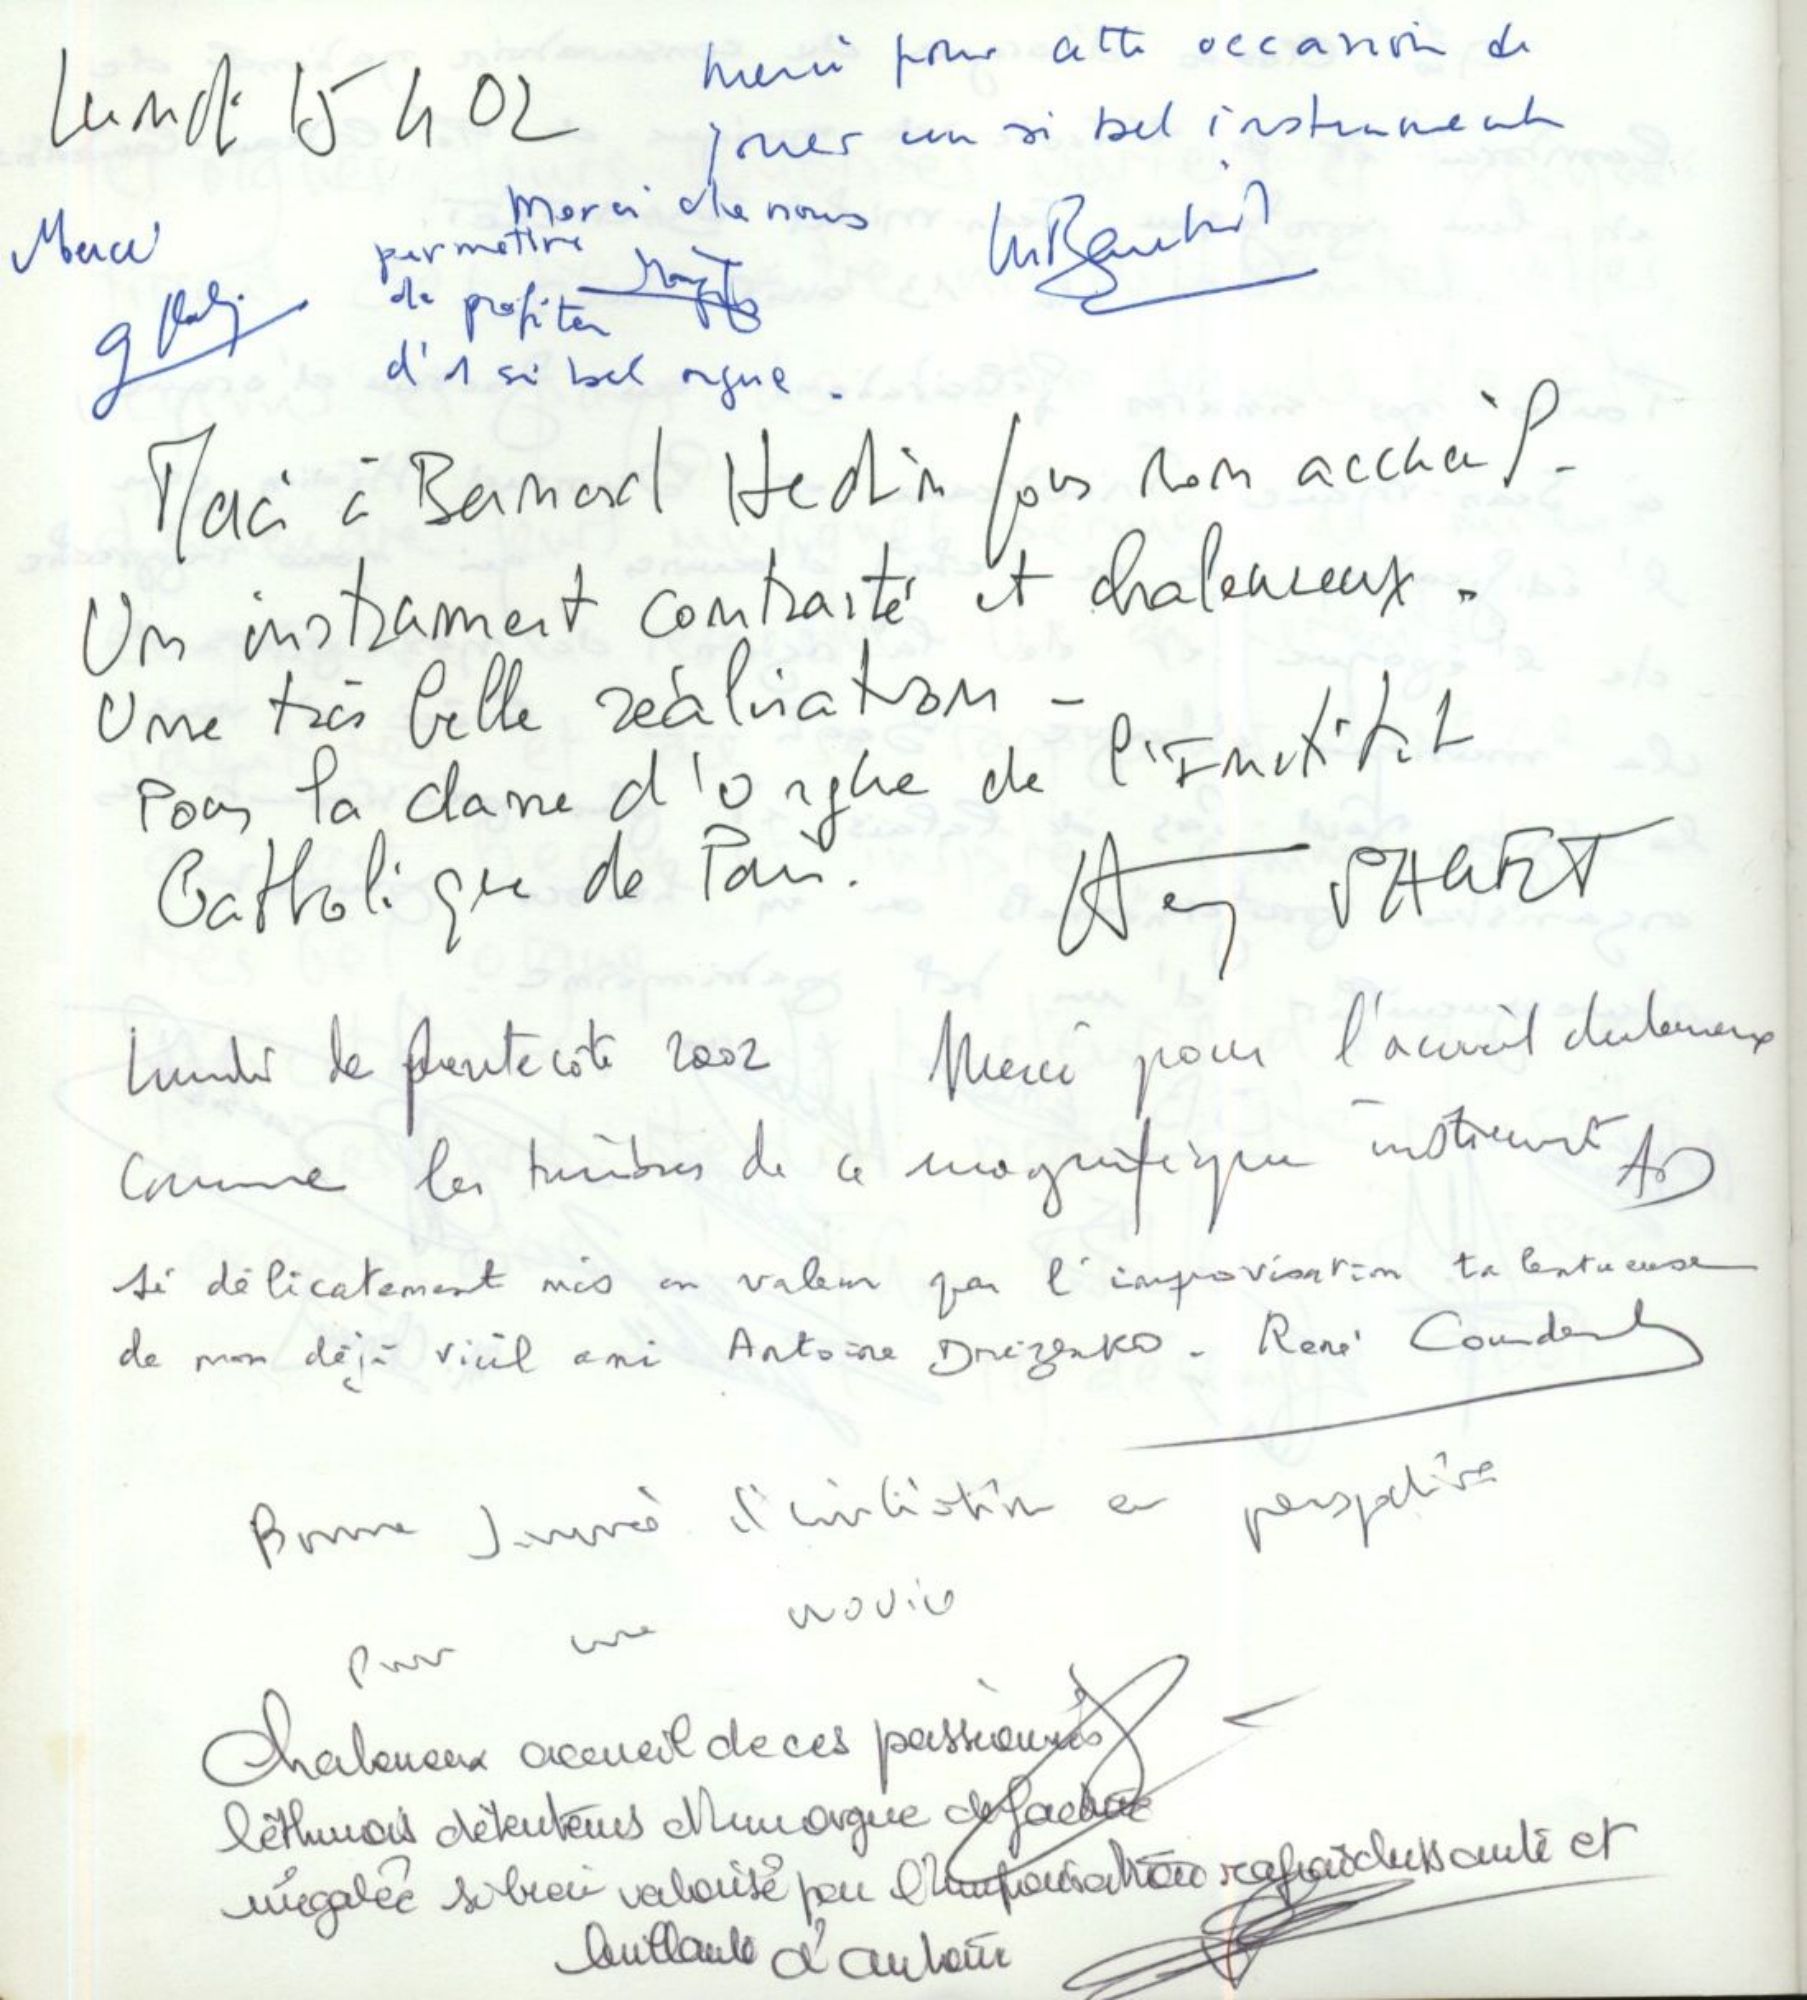 Lundi 15 4 02
Merci pour cette occasion de
jouer un si bel instrument
Merci
Merci de nous
permettre
de profiter
d'1 si bel orgue.
Merci à Bernard Hedin pour son accueil.
Un instrument contrasté et chaleureux.
Une très belle réalisation -
Pour la classe d'orgue de l'Institut
Catholique de Paris.
Lundi de pentecôte 2002
Merci pour l'accueil chaleureux
comme les timbres de ce magnifique instrument AD
si délicatement mis en valeur par l'improvisation talentueuse
de mon déjà vieil ami Antoine Drizenko. René
Bonne Journée d'initiation en perspective
pour une novice
Chaleureux accueil de ces passionnés
béthunois détenteurs d'un orgue de facture
inégalée si bien valorisé par l'improvisation rafraîchissante et
brillante d'antoine